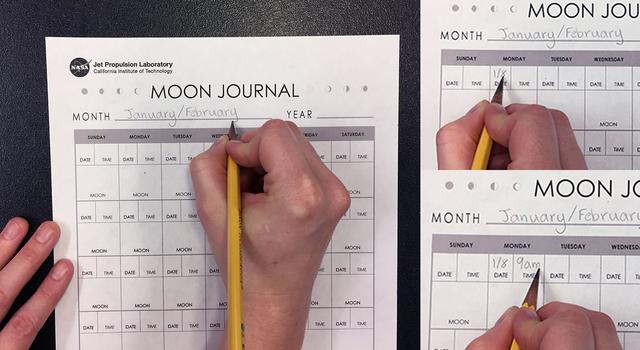 NASA Jet Propulsion Laboratory
California Institute of Technology
MOON JOURNAL
MONTH January/February YEAR
SUNDAY MONDAY TUESDAY SATURDAY
DATE TIME DATE TIME DATE TIME DATE TIME DATE TIME
MOON MOON MOON MOON
DATE TIME DATE TIME DATE TIME DATE TIME
MOON MOON MOON MOON
DATE TIME DATE TIME DATE TIME DATE TIME
MOON MOON MOON MOON
DATE TIME DATE TIME DATE TIME DATE TIME
MOON JOU
MONTH January/February
SUNDAY MONDAY TUESDAY WEDNESDAY
1/8
DATE TIME DATE TIME DATE TIME DATE TIME
MOON
DATE TIME
MOON JO
MONTH January/February
SUNDAY MONDAY TUESDAY WEDNESDA
1/8 9am
DATE TIME DATE TIME DATE TIME DATE TIME
MOON MOON
DATE TIME DATE